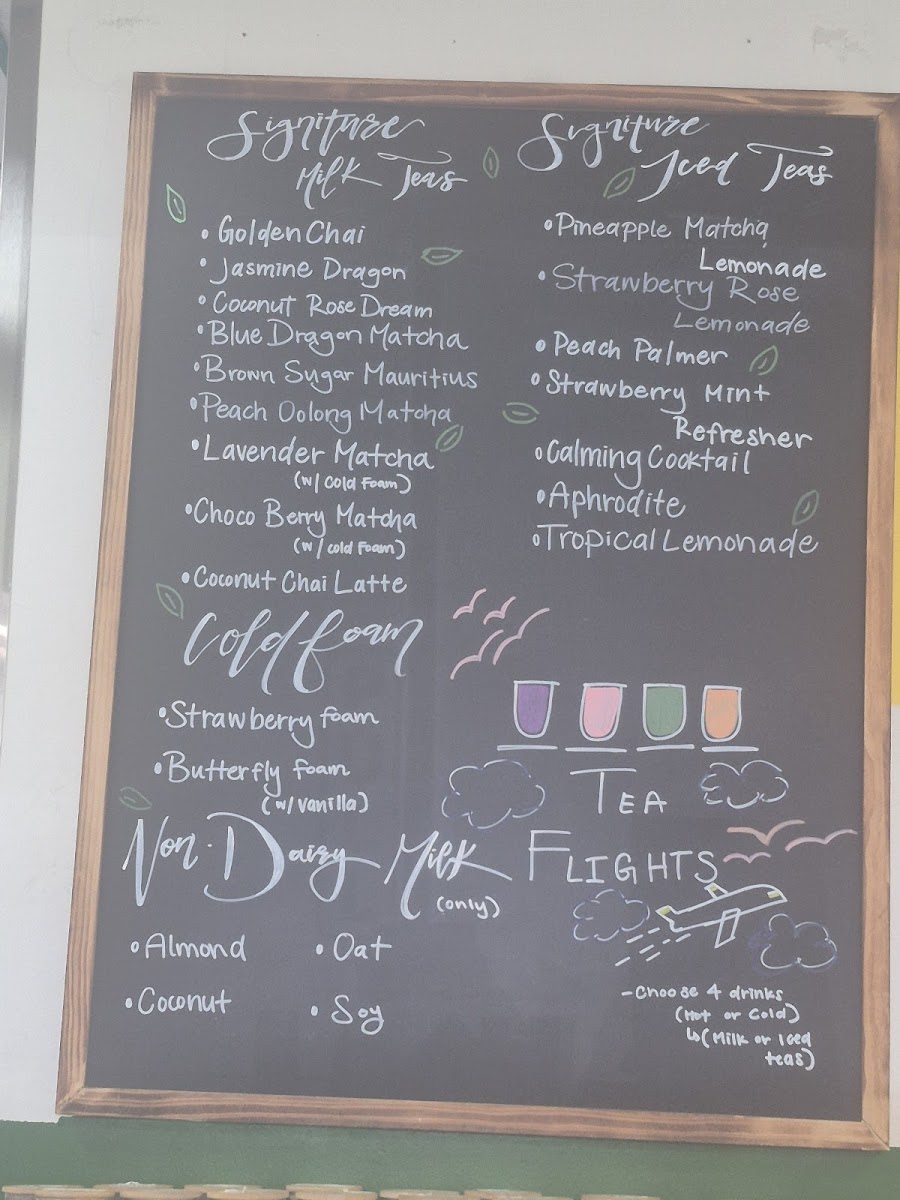 Signiture
Milk Teas
• Golden Chai
• Jasmine Dragon
• Coconut Rose Dream
• Blue Dragon Matcha
• Brown Sugar Mauritius
• Peach Oolong Matcha
• Lavender Matcha
(w/ cold foam)
• Choco Berry Matcha
(w/ cold foam)
• Coconut Chai Latte
Cold foam
• Strawberry foam
• Butterfly foam
(w/ vanilla)
Non-Dairy Milk
(only)
• Almond
• Oat
• Coconut
• Soy
Signiture
Iced Teas
• Pineapple Matcha
Lemonade
• Strawberry Rose
Lemonade
• Peach Palmer
• Strawberry Mint
Refresher
• Calming Cocktail
• Aphrodite
• Tropical Lemonade
TEA
FLIGHTS
- Choose 4 drinks
(Hot or Cold)
↳ (Milk or Iced
teas)